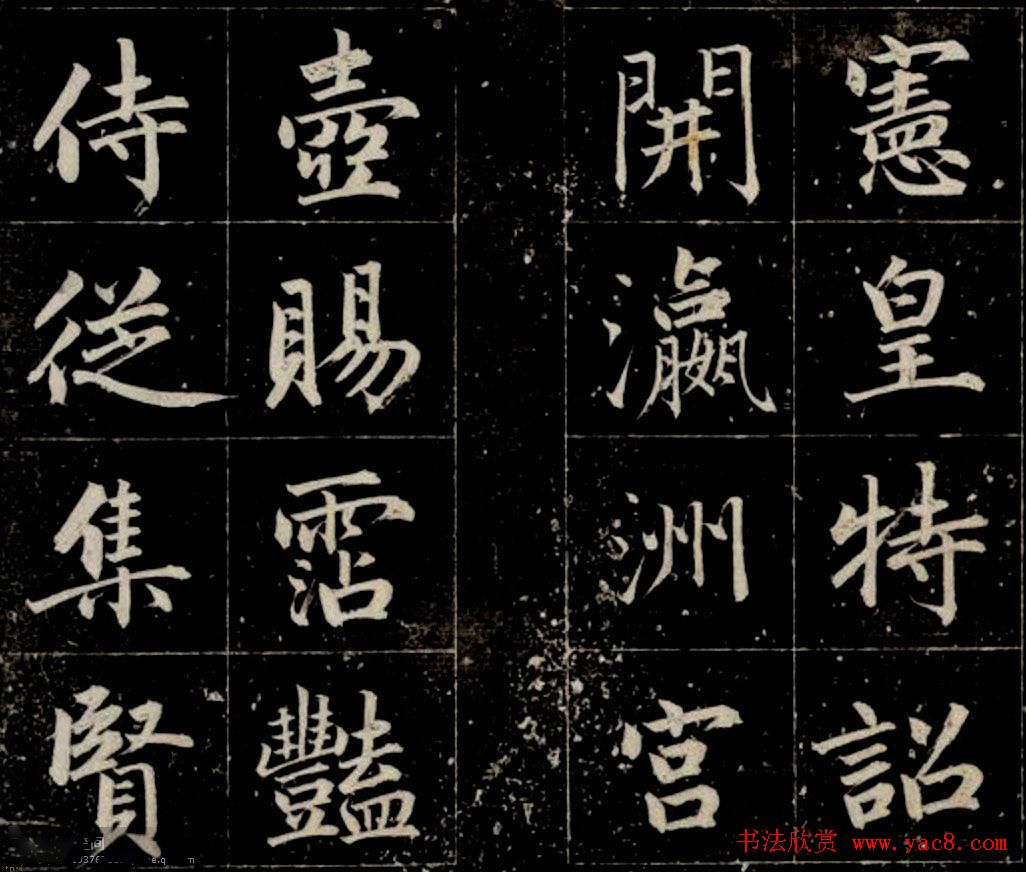 憲皇特詔
開瀛洲宮
壺賜霑豔
侍從集賢
书法欣赏 www.yac8.com